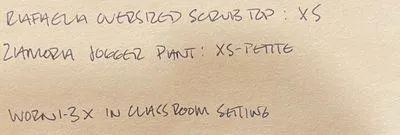 RAFAELA OVERSIZED SCRUB TOP : XS
ZAMORA JOGGER PANT : XS-PETITE
WORN 1-3X IN CLASSROOM SETTING